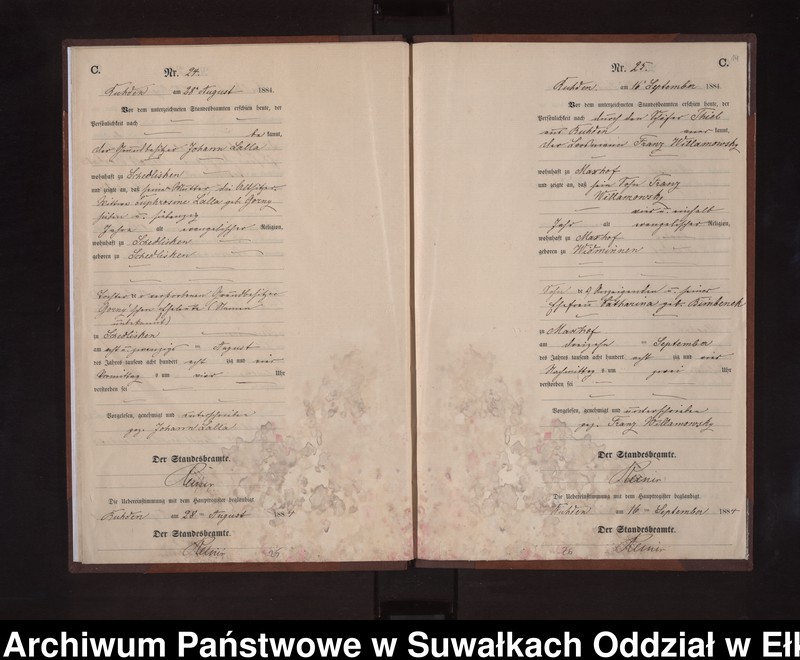 C.
Nr. 24.
Kuhden am 28ten August 1884
Vor dem unterzeichneten Standesbeamten erschien heute, der
Persönlichkeit nach
be kannt,
der Grundbesitzer Johann Lalla
wohnhaft zu Schedlisken
und zeigte an, daß seine Mutter, die Altsitzer
Wittwe Euphrosine Lalla geb. Gorny
sieben u. siebenzig
Jahre alt evangelischer Religion,
wohnhaft zu Schedlisken
geboren zu Schedlisken
Tochter der verstorbenen Grundbesitzer
Gorny'schen Eheleute (Namen
unbekannt)
zu Schedlisken
am acht u. zwanzigsten August
des Jahres tausend acht hundert acht zig und vier
Vormittags um vier Uhr
verstorben sei
Vorgelesen, genehmigt und unterschrieben
gez. Johann Lalla
Der Standesbeamte.
Die Uebereinstimmung mit dem Hauptregister beglaubigt
Kuhden am 28ten August 1884
Der Standesbeamte.
26
C.
Nr. 25.
Kuhden am 16ten September 1884
Vor dem unterzeichneten Standesbeamten erschien heute, der
Persönlichkeit nach durch den Schäfer Thiel
aus Kuhden aner kannt,
der Losmann Franz Willamowsky
wohnhaft zu Maxhof
und zeigte an, daß sein Sohn Franz
Willamowsky
vier u. einhalb
Jahr alt evangelischer Religion,
wohnhaft zu Maxhof
geboren zu Widminnen
Sohn des Anzeigenden u. seiner
Ehefrau Catharina geb.
zu Maxhof
am September
des Jahres tausend acht hundert acht zig und vier
Nachmittags um zwei Uhr
verstorben sei
Vorgelesen, genehmigt und unterschrieben
gez. Franz Willamowsky
Der Standesbeamte.
Die Uebereinstimmung mit dem Hauptregister beglaubigt
Kuhden am 16ten September 1884
Der Standesbeamte.
26
Archiwum Państwowe w Suwałkach Oddział w Ełk